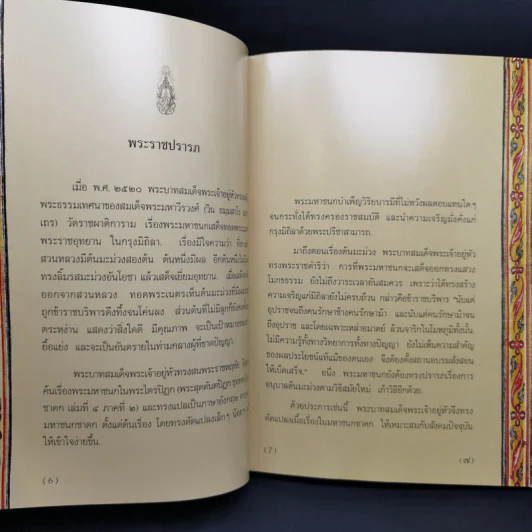 พระราชปรารภ
เมื่อ พ.ศ. ๒๕๒๐ พระบาทสมเด็จพระเจ้าอยู่หัวทรง
พระธรรมเทศนาของสมเด็จพระมหาวีรวงศ์ (วิน ธมฺมสาโร
เถร) วัดราชผาติการาม เรื่องพระมหาชนกเสด็จทอดพระเนตร
พระราชอุทยาน ในกรุงมิถิลา. เรื่องมีใจความว่า ที่
สวนหลวงมีต้นมะม่วงสองต้น ต้นหนึ่งมีผล อีกต้นหนึ่ง
ทรงลิ้มรสมะม่วงอันโอชา แล้วเสด็จเยี่ยมอุทยาน. เมื่อเสด็จ
ออกจากสวนหลวง ทอดพระเนตรเห็นต้นมะม่วงที่มี
ถูกข้าราชบริพารดึงทึ้งจนโค่นลง ส่วนต้นที่ไม่มีลูกก็ยัง
ตระหง่าน แสดงว่าสิ่งใดดี มีคุณภาพ จะเป็นเป้าหมายของ
ยื้อแย่ง และจะเป็นอันตรายในท่ามกลางผู้ที่ขาดปัญญา.
พระบาทสมเด็จพระเจ้าอยู่หัวทรงสนพระราชหฤทัย
ค้นเรื่องพระมหาชนกในพระไตรปิฎก (พระสุตตันตปิฎก
ชาดก เล่มที่ ๔ ภาคที่ ๒) และทรงแปลเป็นภาษาอังกฤษ
มหาชนกชาดก ตั้งแต่ต้นเรื่อง โดยทรงดัดแปลงเล็กๆ น้อยๆ
ให้เข้าใจง่ายขึ้น.
(6)
พระมหาชนกบำเพ็ญวิริยบารมีที่ไม่หวังผลตอบแทนใดๆ
จนกระทั่งได้ทรงครองราชสมบัติ และนำความเจริญมั่งคั่งแก่
กรุงมิถิลาด้วยพระปรีชาสามารถ.
มาถึงตอนเรื่องต้นมะม่วง พระบาทสมเด็จพระเจ้าอยู่หัว
ทรงพระดำริว่า การที่พระมหาชนกจะเสด็จออกทรงแสวง
โมกขธรรม ยังไม่ถึงวาระเวลาอันสมควร เพราะว่าได้ทรงสร้าง
ความเจริญแก่มิถิลายังไม่ครบถ้วน กล่าวคือข้าราชบริพาร "นับแต่
อุปราชจนถึงคนรักษาช้างคนรักษาม้า และนับแต่คนรักษาม้าจน
ถึงอุปราช และโดยเฉพาะเหล่าอมาตย์ ล้วนจาริกในโมหภูมิทั้งนั้น.
ไม่มีความรู้ทั้งทางวิทยาการทั้งทางปัญญา ยังไม่เห็นความสำคัญ
ของผลประโยชน์แท้แม้ของตนเอง จึงต้องตั้งสถานอบรมสั่งสอน
ให้เบ็ดเสร็จ." อนึ่ง พระมหาชนกยังต้องทรงปรารภเรื่องการ
อนุบาลต้นมะม่วงตามวิธีสมัยใหม่ เก้าวิธีอีกด้วย.
ด้วยประการเช่นนี้ พระบาทสมเด็จพระเจ้าอยู่หัวจึงทรง
ดัดแปลงเนื้อเรื่องในมหาชนกชาดก ให้เหมาะสมกับสังคมปัจจุบัน
(7)
(๗)